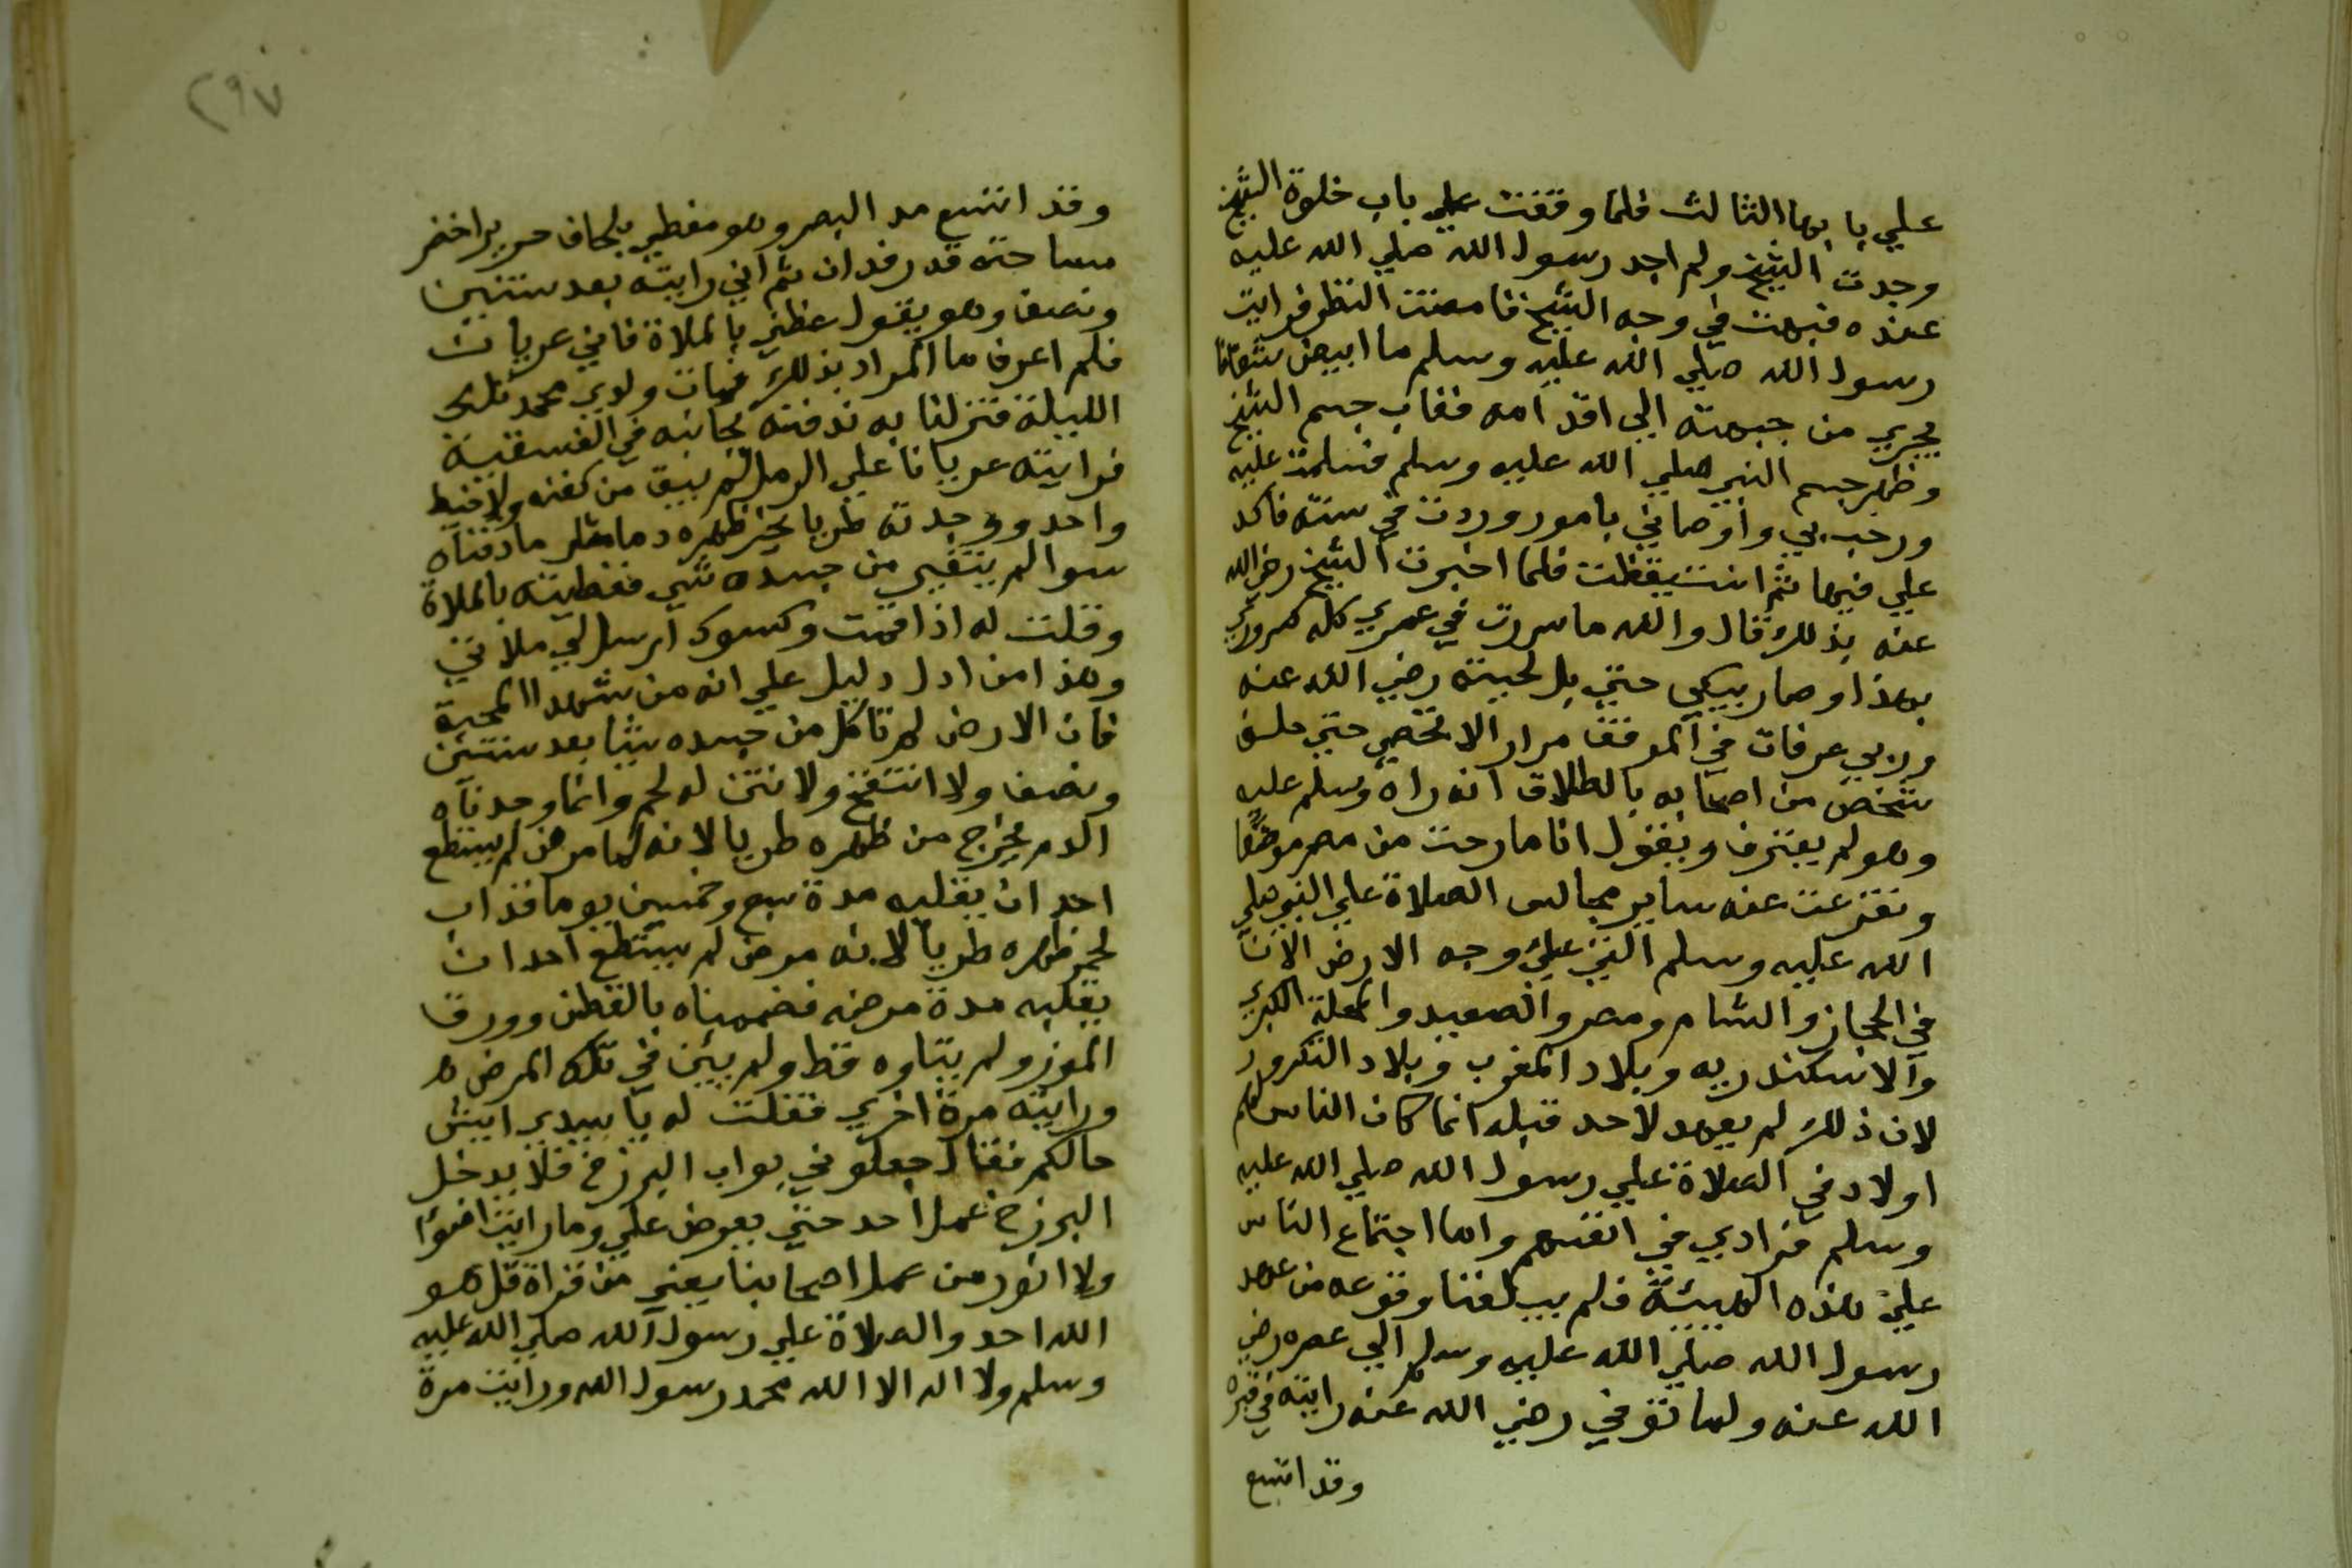 علي بابها الثالث فلما وقفت علي باب خلوة الشيخ
وجدت الشيخ ولم اجد رسول الله صلي الله عليه
عنده فبهت في وجه الشيخ فامعنت النظر فرايت
رسول الله صلي الله عليه وسلم ما ابيض شفافا
يجري من جبهته الي اقدامه فغاب جسم الشيخ
وظهر جسم النبي صلي الله عليه وسلم فسلمت عليه
ورحب بي واوصاني بامور وردت في سنته فاكد
علي فيها ثم استيقظت فلما اخبرت الشيخ رضي الله
عنه بذلك قال والله ما سررت في عمري كله كسروري
بهذا وصار يبكي حتي بل لحيته رضي الله عنه
وربي عرفات في الموقف مرارا لا تحصي حتي حلف
شخص من اصحابه بالطلاق انه راه وسلم عليه
وهو لم يعترف ويقول انا ما رحت من مصر موضعا
وتفرعت عنه ساير مجالس الصلاة علي النبي صلي
الله عليه وسلم التي علي وجه الارض الان
في الحجاز والشام ومصر والصعيد والمحلة الكبري
والاسكندريه وبلاد المغرب وبلاد التكرور
لان ذلك لم يعهد لاحد قبله انما كان الناس لهم
اولاد في الصلاة علي رسول الله صلي الله عليه
وسلم فرادي في انفسهم واما اجتماع الناس
علي هذه الهيئة فلم يبلغنا وقوعه من عهد
رسول الله صلي الله عليه وسلم الي عصره رضي
الله عنه ولما توفي رضي الله عنه رايته في قبره
وقد اتسع
٢٩٧
وقد اتسع مد البصر وهو مغطي بلحاف حرير اخضر
مساحته قدر فدان ثم اني رايته بعد سنتين
ونصف وهو يقول غطني بالملاة فاني عريان
فلم اعرف ما المراد بذلك فمات ولدي محمد تلك
الليلة فنزلنا به ندفنه بجانبه في الفسقية
فرايته عريانا علي الرمل لم يبق من كفنه ولا خيط
واحد ووجدته طريا يخر ظهره دما مثل ما دفناه
سوا لم يتغير من جسده شي فغطيته بالملاة
وقلت له اذا قمت وكسوك ارسل لي ملاتي
وهذا من ادل دليل علي انه من شهدا المحبة
فان الارض لم تاكل من جسده شيا بعد سنتين
ونصف ولا انتفخ ولا نتن له لحم وانما وجدناه
الدم يخرج من ظهره طريا لانه لما مرض لم يستطع
احد ان يقلبه مدة سبع وخمسين يوما فذاب
لحم ظهره طريا لانه مرض لم يستطع احد ان
يقلبه مدة مرضه فضممناه بالقطن وورق
الموز ولم يتاوه قط ولم يئن في تلك المرض ه
ورايته مرة اخري فقلت له يا سيدي ايش
حالكم فقال جعلوني بواب البرزخ فلا يدخل
البرزخ عمل احد حتي يعرض علي وما رايت اضوا
ولا انور من عمل اصحابنا يعني من قراة قل هو
الله احد والصلاة علي رسول الله صلي الله عليه
وسلم ولا اله الا الله محمد رسول الله ورايت مرة